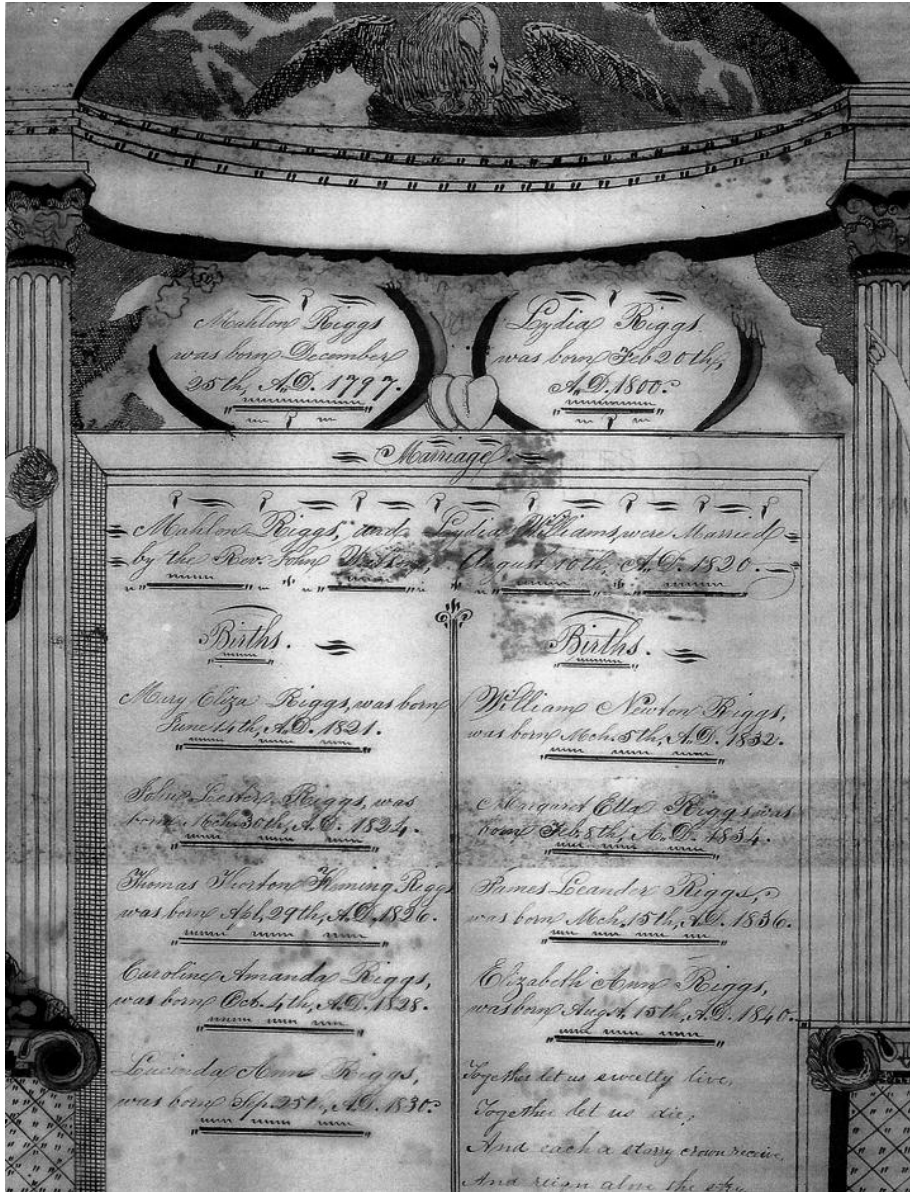 Mahlon Riggs
was born December
25th, A.D. 1797.
Lydia Riggs
was born Feb 20th,
A.D. 1800.
Marriage.
Mahlon Riggs, and Lydia Williams, were Married
by the Rev. John August 10th, A.D. 1820.
Births.
Mary Eliza Riggs, was born
June 14th, A.D. 1821.
John Lester Riggs, was
born Mch. 30th, A.D. 1824.
Thomas Horton Fleming Riggs
was born Apl, 29th, A.D. 1826.
Caroline Amanda Riggs,
was born Oct. 4th, A.D. 1828.
Lucinda Ann Riggs,
was born Sep. 25th, A.D. 1830.
Births.
William Newton Riggs,
was born Mch. 5th, A.D. 1832.
Margaret Etta Riggs, was
born Feb. 8th, A.D. 1834.
James Leander Riggs,
was born Mch. 15th, A.D. 1836.
Elizabeth Ann Riggs,
was born Augt. 15th, A.D. 1840.
Together let us sweetly live,
Together let us die,
And each a starry crown receive,
And reign above the sky